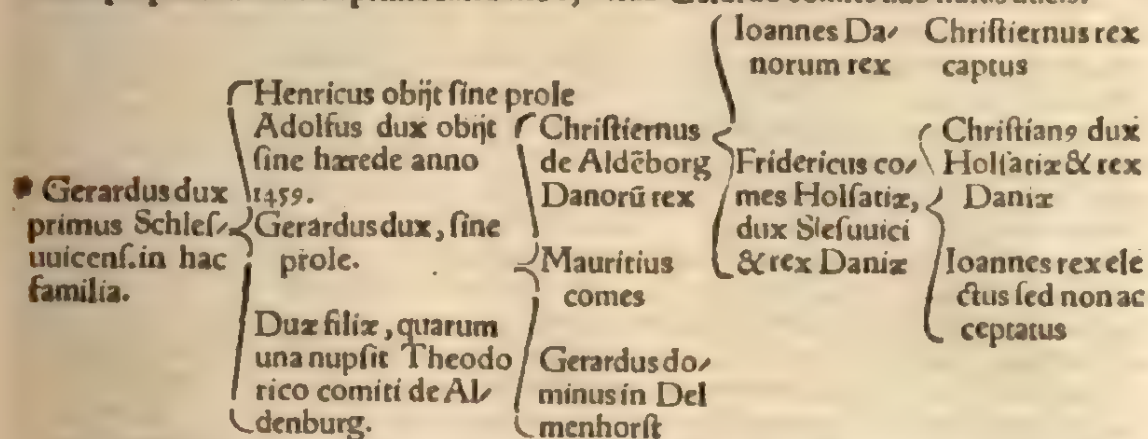 Gerardus dux
primus Schleſ⸗
uuicenſ. in hac
familia.
Henricus obijt ſine prole
Adolfus dux obijt
ſine hærede anno
1459.
Gerardus dux, ſine
prole.
Duæ filiæ, quarum
una nupſit Theodo
rico comiti de Al⸗
denburg.
Chriſtiernus
de Aldēborg
Danorū rex
Mauritius
comes
Gerardus do⸗
minus in Del
menhorſt
Ioannes Da⸗
norum rex
Fridericus co⸗
mes Holſatiæ,
dux Sleſuuici
& rex Daniæ
Chriſtiernus rex
captus
Chriſtianꝰ dux
Holſatiæ & rex
Daniæ
Ioannes rex ele
ctus ſed non ac
ceptatus